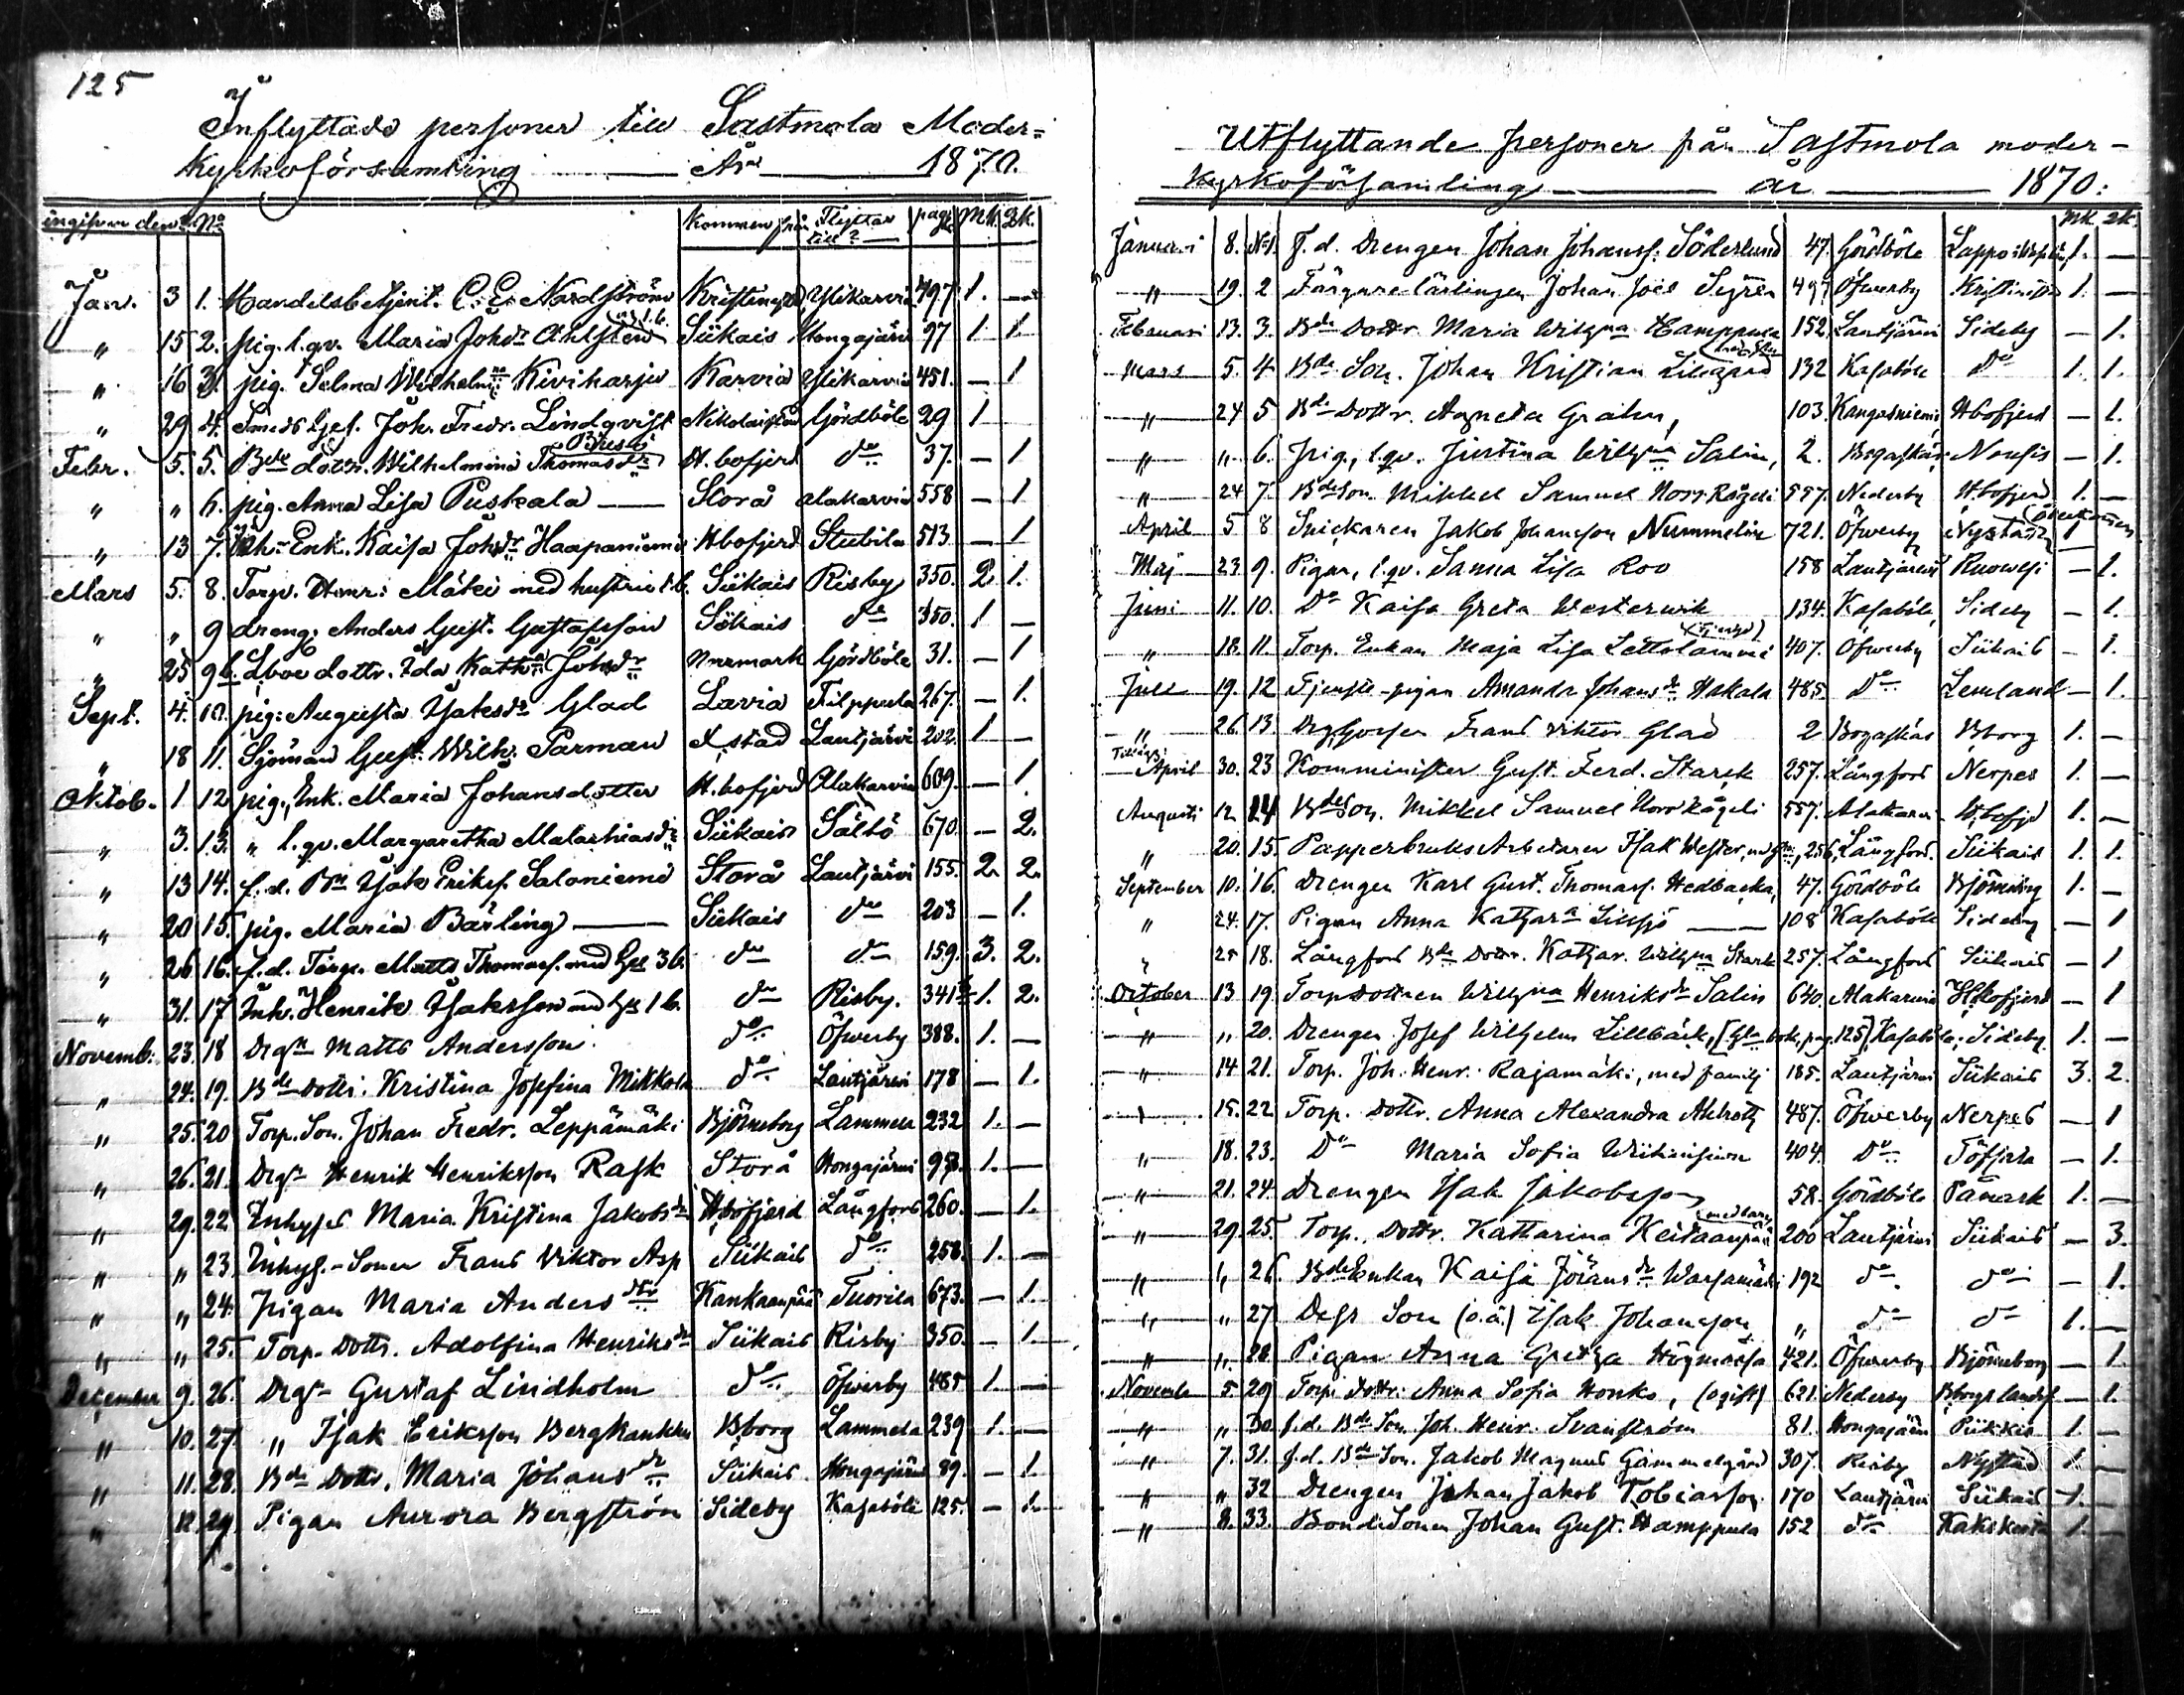 125
Inflyttade personer till Sastmola Moder=
kyrkoförsamling ——— År ——— 1870.
ingifven den No kommen från Flyttar till? pag Mk. Qk.
Jan. 3 1. Handelsbetjent. C. E. Nordström Kristinestd Ylikarvia 497 1. —
" 15 2. pig. l.qv. Maria Johsdr Ahlsten m 1 b. Siikais Hongajärvi 97 1 1
" 16 3. pig. Selma Wilhelmina Kiviharju Karvia Ylikarvia 451. — 1
" 29 4. Smeds Ges. Joh. Fredr. Lindqvist Nikolaistad Gördböle 29 1
Febr. 5. 5. Bde dottr. Wilhelmina Thomasdr H.bofjerd do 37. — 1
" " 6. pig. Anna Lisa Puskala — Storå Alakarvia 558 — 1
" 13 7. Inh. Enk. Kaisa Johsdr Haapaniemi H.bofjerd Stubila 513 — 1
Mars 5. 8. Torp. Henr: Mäkei med hustru 1 b. Siikais Risby 350. 2 1.
" " 9 dreng: Anders Gust. Gustafsson Siikais do 350. 1 —
" 25 9 b. Lboe dottr. Ida Kathna Johsdr Nermark Gördböle 31. — 1
Sept. 4. 10. pig: Augusta Isaksdr Glad Lavia Filppula 267. — 1.
" 18 11. Sjöman Gust. Wilh. Parman Xstad Lautjärvi 202. 1 —
Oktob. 1 12 pig., Enk. Maria Johansdotter H.bofjerd Alakarvia 609. — 1.
" 3. 13. " l.qv. Margaretha Malachiasdr Siikais Sälbö 670. — 2.
" 13 14. f.d. Bn Isak Eriksf. Saloniemi Storå Lautjärvi 155. 2. 2.
" 20 15. pig. Maria Bärling — Siikais do 203 — 1.
" 26 16. f.d. Torp. Matts Thomasf. med Hu 3 b. do do 159. 3. 2.
" 31. 17 Inh. Henrik Isaksson md hu 1 b. do Risby. 341 1. 2.
Novemb. 23. 18 Drgn Matts Andersson do Öfverby 388. 1. —
" 24. 19. Bde Dottr. Kristina Josefina Mikkola do Lautjärvi 178 — 1.
" 25. 20 Torp. Son. Johan Fredr. Leppämäki Björneborg Lammela 232 1. —
" 26. 21. Drgn Henrik Henriksson Rask Storå Hongajärvi 98. 1. —
" 29. 22 Inhyses Maria Kristina Jakobsdr Hbofjerd Långfors 260. — 1.
" " 23 Inhys.-Sonen Frans Viktor Asp Siikais do 258. 1. —
" " 24. Pigan Maria Andersdtr Kankaanpää Tuorila 673. — 1.
" " 25. Torp. Dottr. Adolfina Henriksdr Siikais Risby 350. — 1.
December 9. 26. Drgn Gustaf Lindholm do Öfverby 485 1. —
" 10. 27 " Isak Eriksson Bergkankku Bborg Lammela 239 1. —
" 11. 28. Bde Dottr. Maria Johansdr Siikais Hongajärvi 89. — 1.
" 12. 29 Pigan Aurora Bergström Sideby Kasaböle 125. — 1.
Utflyttande personer från Sastmola moder-
kyrkoförsamling ——— år ——— 1870:
mk qk.
Januari 8. No1. F.d. Drengen Johan Johansf: Söderlund 47. Gördböle Lappo 1. —
" 19. 2 Färgare lärlingen Johan Joel Segren 497 Öfverby Kristinestd 1. —
Februari 13. 3. Bde Dottr Maria Wilhna Hamppula 152. Lautjärvi Sideby — 1.
Mars 5. 4 Bde Son. Johan Kristian Lillgärd 132 Kasaböle Do 1. 1.
" 24 5 Bde Dottr. Agneta Grahn, 103. Kangasniemi Hbofjerd — 1.
" " 6. Pig., l.qv. Justina Wilhna Salin, 2. Bogaskär Nousis — 1.
" 24 7. Bde Son Mikkel Samuel Norrkågeli 557. Nederby Hbofjerd 1. —
April 5 8 Snickaren Jakob Johansson Nummelin 721. Öfverby Nystad 1 —
Maj 23 9. Pigan, l.qv. Sanna Lisa Roo 158 Lautjärvi Ruovesi — 1.
Juni 11. 10. Do Kaisa Greta Westervik 134. Kasaböle, Sideby — 1.
" 18. 11. Torp. Enkan Maja Lisa Lettolamm 407. Öfverby Siikais — 1.
Juli 19. 12 Tjenste-pigan Amanda Johansdr Hakala 485. Do Lemland — 1.
" 26. 13 Drg Gossen Frans Viktor Glad 2. Bogaskär Bborg 1. —
April 30. 23 Komminister Gust. Ferd. Starck 257. Långfors Nerpes 1. —
Augusti 12. 14 Bde Son. Mikkel Samuel Norrkågeli 557. Alakarvi Hbofjd 1. —
" 20. 15. Pappersbruks Arbetaren Isak Wester, 256 Långfors. Siikais 1. 1.
September 10. 16. Drengen Karl Gust. Thomasf. Hedbacka, 47. Gördböle Björneborg 1. —
" 24. 17. Pigan Anna Kathara Lillsjö — 108 Kasaböle Sideby — 1
" 25 18. Långfors Bde Dottr. Kathar. Wilhna Stark 257. Långfors Siikais — 1
October 13 19 Torpdottren Wilhna Henriksdr Salin 640. Alakarvia Hbofjerd — 1
" " 20. Drengen Josef Wilhelm Lillbäck, [Gla bok, pag. 125] Kasaböle: Sideby. 1. —
" 14 21. Torp. Joh. Henr: Rajamäki, med familj 185. Lautjärvi Siikais 3. 2.
" 15. 22 Torp. Dottr. Anna Alexandra Ahlroth 487. Öfverby Nerpes — 1
" 18. 23. Do Maria Sofia 404. Do Töfsala — 1.
" 21. 24. Drengen Isak Jakobsson 58. Gördböle Påmark 1. —
" 29. 25. Torp. Dottr. Katharina Keitaanpää med barn 200 Lautjärvi Siikais — 3.
" " 26. Bde Enkan Kaisa Jöransdr Warsamäki 192 do do — 1.
" " 27 Dess Son (o.ä.) Isak Johansson " do do 1. —
" " 28. Pigan Anna Greta Högmossa 421. Öfverby Björneborg — 1.
Novemb 5 29 Torp. Dottr: Anna Sofia Honko, (ogift) 621. Nederby Bborgs landsf. — 1.
" " 30 f.d. Bde Son. Joh. Henr. Svanström 81. Hongajärvi Piikkis 1. —
" 7. 31. f.d. Bde Son. Jakob Magnus Gammelgård 307. Risby Nystad 1. —
" " 32 Drengen Johan Jakob Tobiasson 170 Lautjärvi Siikais 1. —
" 8. 33. BondeSonen Johan Gust. Hamppula 152 do Kakskerta 1. —